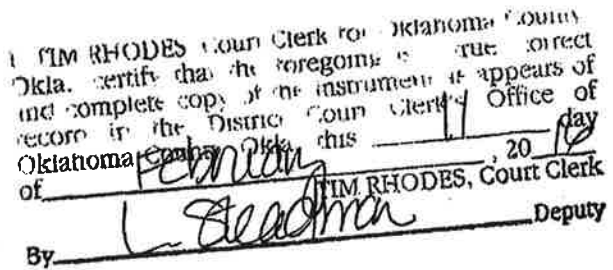 I, TIM RHODES Court Clerk for Oklahoma County
Okla. certify that the foregoing is true correct
and complete copy of the instrument as appears of
record in the District Court Clerk's Office of
Oklahoma County Okla. this 11 day
of February, 20 16
TIM RHODES, Court Clerk
By L Steadman Deputy